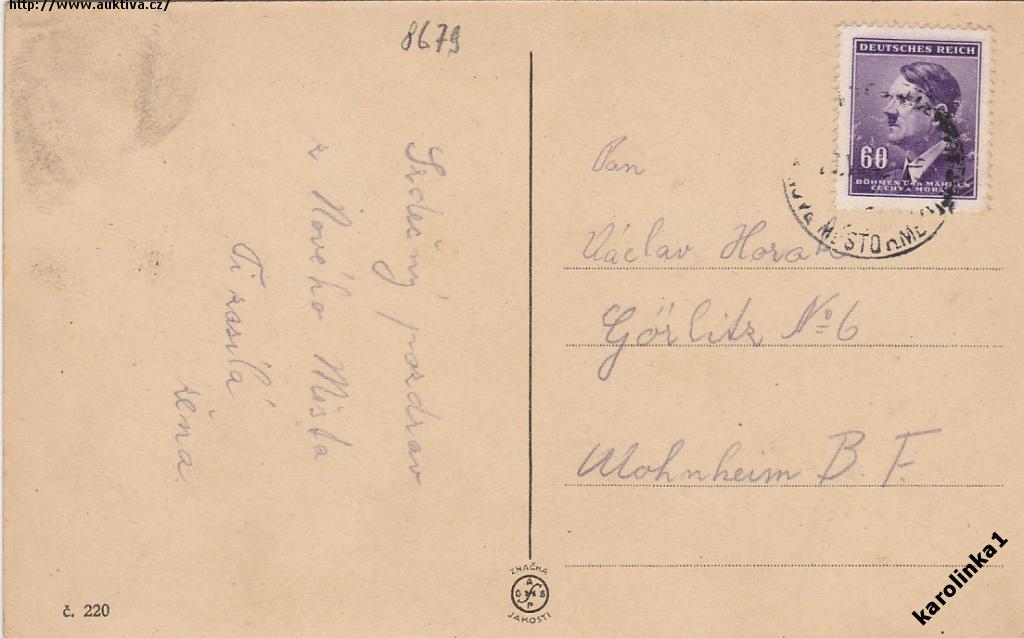 http://www.auktiva.cz/
8679
Srdečný pozdrav
z Nového Města
Ti zasílá
žena.
DEUTSCHES REICH
60
BÖHMEN UND MÄHREN
ČECHY A MORAVA
MĚSTO n. ME
Pan
Václav Horak
Görlitz No 6
Wohnheim B. F.
ZNAČKA
JAKOSTI
č. 220
karolinka1